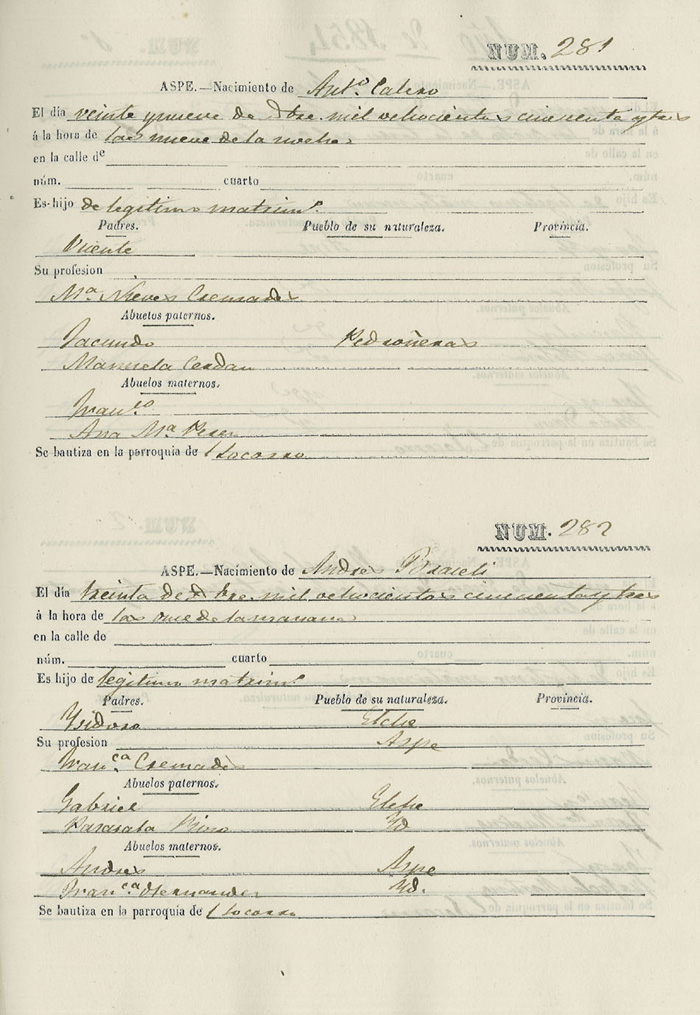 NUM. 281
ASPE.—Nacimiento de Ant.º Calero
El dia veinte y nueve de Dbre. mil ochocientos cincuenta y tres
á la hora de las nueve de la noche
en la calle de
núm. cuarto
Es hijo de legitimo matrim.º
Padres. Pueblo de su naturaleza. Provincia.
Vicente
Su profesion
M.ª Nieves Cremades
Abuelos paternos.
Jacundo Pedroñeras
Manuela Cerdan
Abuelos maternos.
Fran.co
Ana M.ª Perez
Se bautiza en la parroquia de Socorro
NUM. 282
ASPE.—Nacimiento de Andres
El dia treinta de Dbre. mil ochocientos cincuenta y tres
á la hora de las once de la mañana
en la calle de
núm. cuarto
Es hijo de legitimo matrim.º
Padres. Pueblo de su naturaleza. Provincia.
Ysidoro Elche
Su profesion Aspe
Fran.ca Cremades
Abuelos paternos.
Gabriel Elche
Yd
Abuelos maternos.
Andres Aspe
Fran.ca Hernandez Yd.
Se bautiza en la parroquia de Socorro